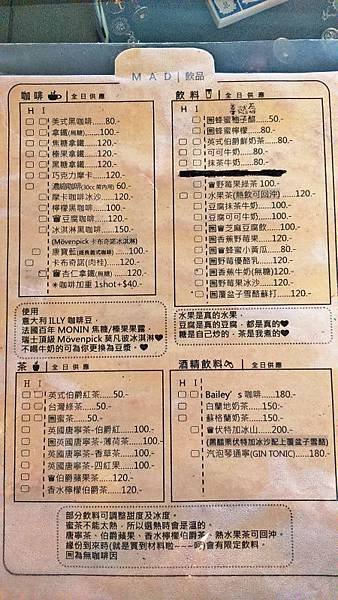 MAD|飲品
咖啡 全日供應
H I
美式黑咖啡......80.-
拿鐵(無糖).......100.-
焦糖拿鐵..........120.-
榛果拿鐵..........120.-
黑糖拿鐵..........120.-
巧克力摩卡......120.-
濃縮咖啡(30cc 限內用) 60.-
摩卡咖啡冰沙.....120.-
檸檬黑咖啡.......100.-
豆腐咖啡..........120.-
冰淇淋黑咖啡......150.-
(Mövenpick 卡布奇諾冰淇淋)
康寶藍(經典義式咖啡)100.-
卡布奇諾(肉桂)......120.-
杏仁拿鐵(無糖)......120.-
*咖啡加重 1shot+$40.-
使用
意大利 ILLY 咖啡豆.
法國百年 MONIN 焦糖/榛果果露.
瑞士頂級 Mövenpick 莫凡彼冰淇淋♥
不喝牛奶的可為你更換為豆漿.♥
飲料 全日供應
H I
蜂蜜柚子醋......50.-
蜂蜜檸檬.......80.-
英式伯爵鮮奶茶....80.-
可可牛奶...........80.-
抹茶牛奶...........80.-
野莓果綠茶 100.-
水果茶(熱飲可回沖) 120.-
豆腐抹茶牛奶......100.-
豆腐可可牛奶......100.-
芝麻豆腐飲......100.-
香蕉野莓果......120.-
蜂蜜小黃瓜......80.-
野莓優酪乳......120.-
香蕉牛奶(無糖)120.-
野莓冰沙..........120.-
覆盆子雪酪蘇打......120.-
水果是真的水果.
豆腐是真的豆腐.都是真的♥
糖是自己炒的.茶是我煮的♥
茶 全日供應
H I
英式伯爵紅茶......50.-
台灣綠茶..........50.-
蜜茶................50.-
英國唐寧茶-伯爵紅......100.-
英國唐寧茶-薄荷茶......100.-
英國唐寧茶-香草茶......100.-
英國唐寧茶-四紅果......100.-
伯爵蘋果茶.......120.-
香水檸檬伯爵茶......120.-
酒精飲料 全日供應
H I
Bailey's 咖啡......180.-
白蘭地奶茶.......150.-
蘇格蘭奶茶.......150.-
伏特加冰山......200.-
(黑醋栗伏特加冰沙配上覆盆子雪酪)
汽泡琴通寧(GIN TONIC)......180.-
部分飲料可調整甜度及冰度.
蜜茶不能太熱.所以選熱時會是溫的.
唐寧茶、伯爵蘋果、香水檸檬伯爵茶、熱水果茶可回沖.
緣份到來時(就是買到材料啦~~~)會有限定飲料.
為無咖啡因